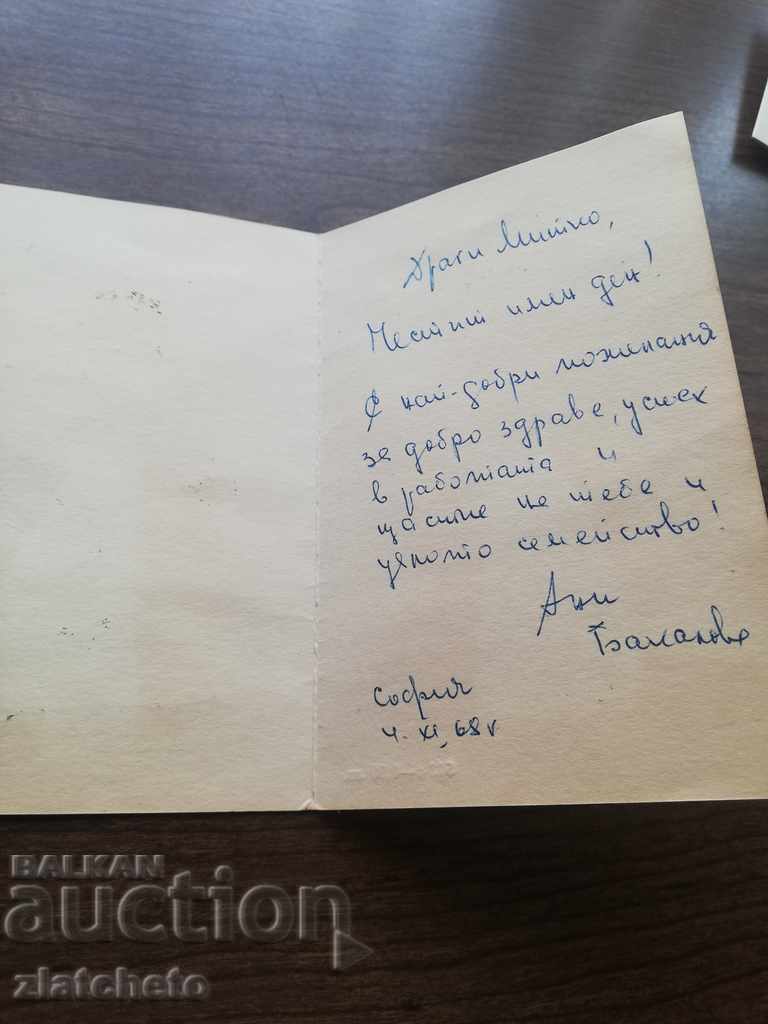 Драги Митко,
Честит имен ден!
С най-добри пожелания
за добро здраве, успех
в работата и
щастие на тебе и
цялото семейство!
Ани
Бакалова
София
4. XI. 68 г
BALKAN
auction
zlatcheto